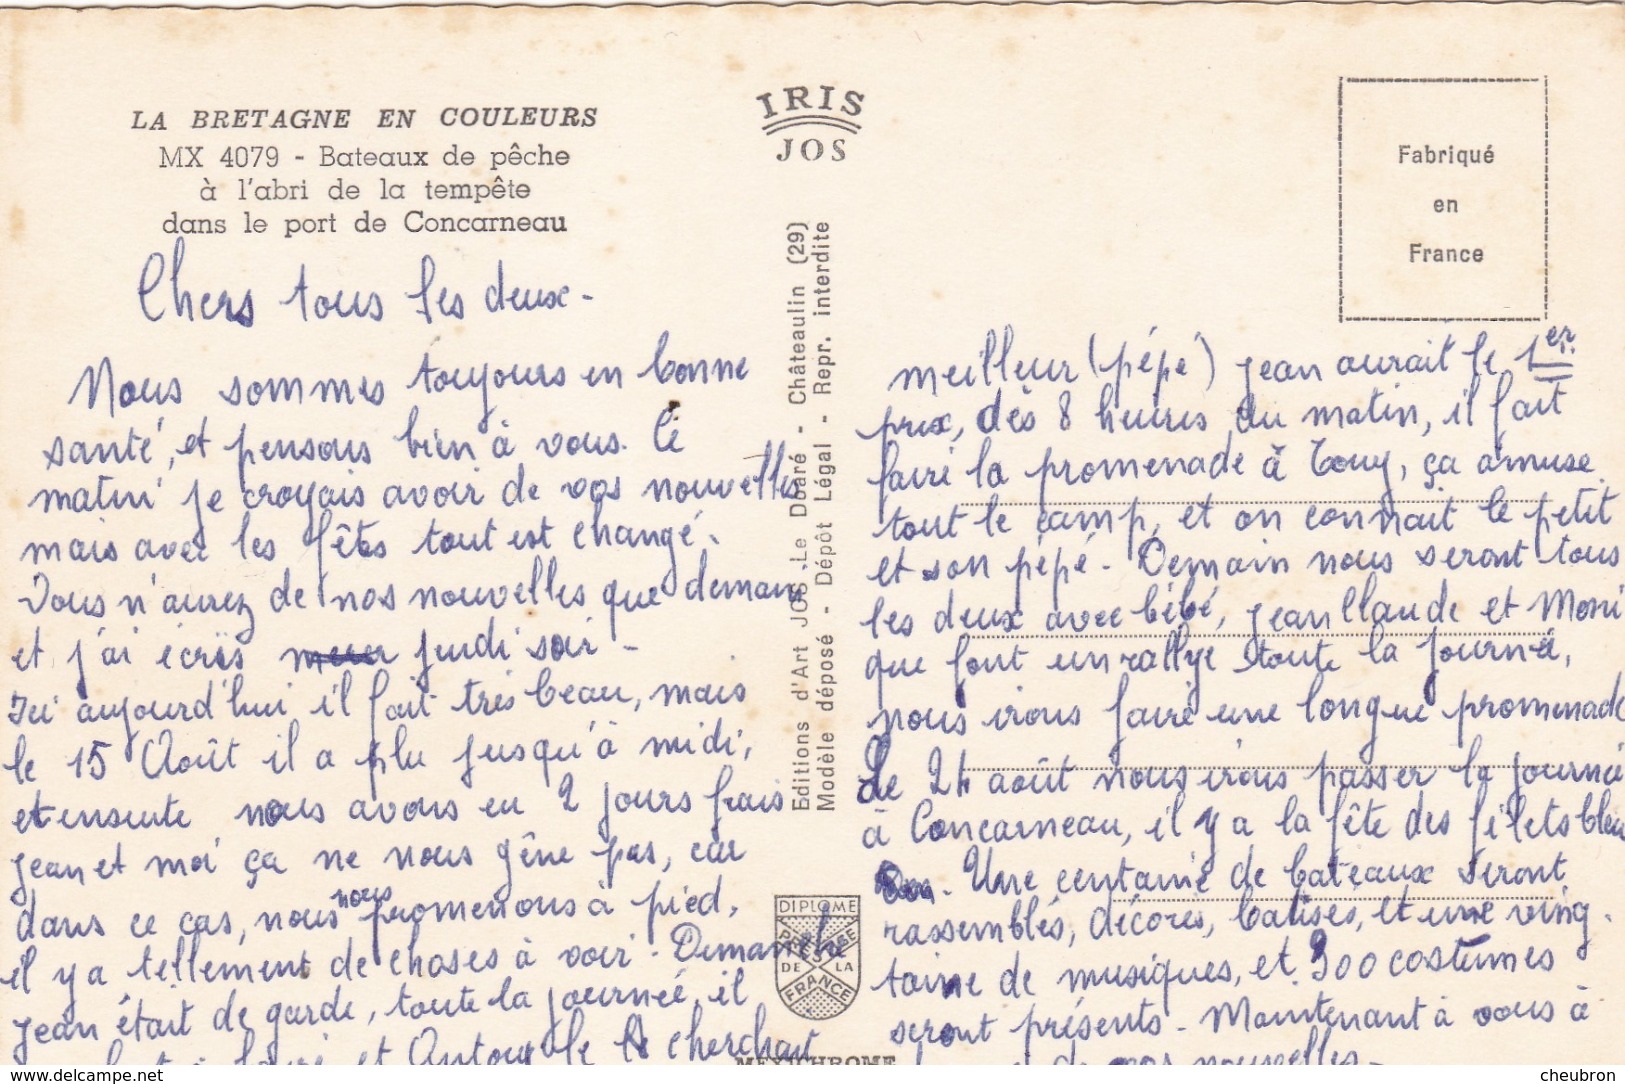 LA BRETAGNE EN COULEURS
MX 4079 - Bateaux de pêche
à l'abri de la tempête
dans le port de Concarneau
Chers tous les deux -
Nous sommes toujours en bonne
santé, et pensons bien à vous. Ce
matin je croyais avoir de vos nouvelles
mais avec les fêtes tout est changé.
Vous n'aurez de nos nouvelles que demain
et j'ai écris jeudi soir -
Ici aujourd'hui il fait très beau, mais
le 15 Août il a plu jusqu'à midi,
et ensuite nous avons eu 2 jours frais
Jean et moi ça ne nous gêne pas, car
dans ce cas, nous nous promenons à pied,
il y a tellement de choses à voir. Dimanche
Jean était de garde, toute la journée, il
et Antony le cherchait
IRIS
JOS
Editions d'Art JOS Le Doaré - Châteaulin (29)
Modèle déposé - Dépôt Légal - Repr. interdite
DIPLOME
PRESTIGE
DE LA
FRANCE
MEXICHROME
Fabriqué
en
France
meilleur (pépé) Jean aurait le 1er
prix, dès 8 heures du matin, il fait
faire la promenade à Tony, ça amuse
tout le camp, et on connait le petit
et son pépé - Demain nous seront tous
les deux avec bébé, Jean Claude et Moni
que font un rallye toute la journée,
nous irons faire une longue promenade
Le 24 août nous irons passer la journée
à Concarneau, il y a la fête des filets bleus
Une centaine de bateaux seront
rassemblés, décorés, balisés, et une ving.
taine de musiques, et 900 costumes
seront présents - Maintenant à vous à
de vos nouvelles -
delcampe.net
cheubron